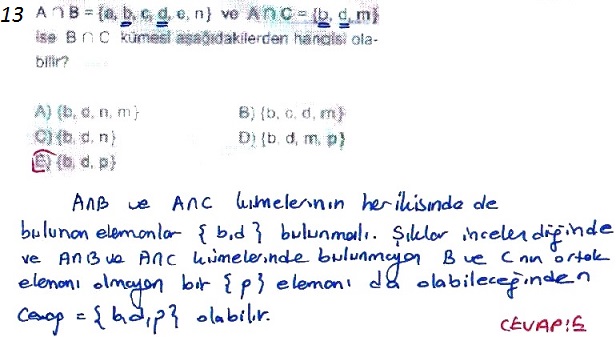 13 A ∩ B = {a, b, c, d, e, n} ve A ∩ C = {b, d, m}
ise B ∩ C kümesi aşağıdakilerden hangisi ola-
bilir?
A) {b, d, n, m} B) {b, c, d, m}
C) {b, d, n} D) {b, d, m, p}
E) {b, d, p}
A∩B ve A∩C kümelerinin her ikisinde de
bulunan elemanlar { b,d } bulunmalı. Şıklar incelendiğinde
ve A∩B ve A∩C kümelerinde bulunmayan B ve C nin ortak
elemanı olmayan bir {p} elemanı da olabileceğinden
Cevap = { b,d,p} olabilir.
CEVAP:E